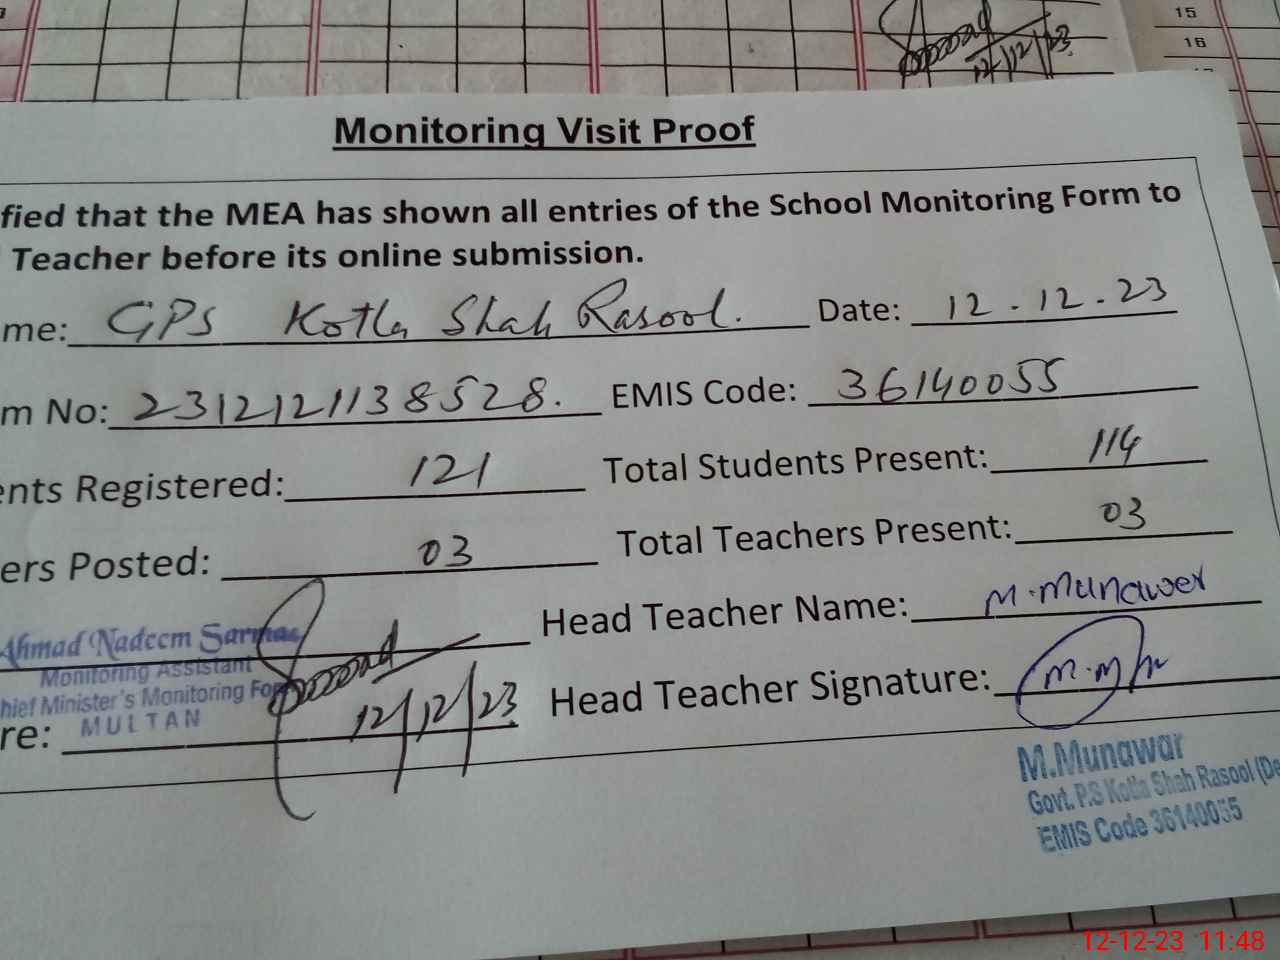 15
16
12/12/23
Monitoring Visit Proof
fied that the MEA has shown all entries of the School Monitoring Form to
Teacher before its online submission.
me: GPS Kotla Shah Rasool. Date: 12.12.23
m No: 2312121138528. EMIS Code: 36140055
ents Registered: 121 Total Students Present: 114
ers Posted: 03 Total Teachers Present: 03
Ahmad Nadeem Sarmad Head Teacher Name: M.Munawer
Monitoring Assistant
hief Minister's Monitoring For
MULTAN
re: 12/12/23 Head Teacher Signature:
M.Munawar
Govt. P.S Kotla Shah Rasool (De
EMIS Code 36140055
12-12-23 11:48